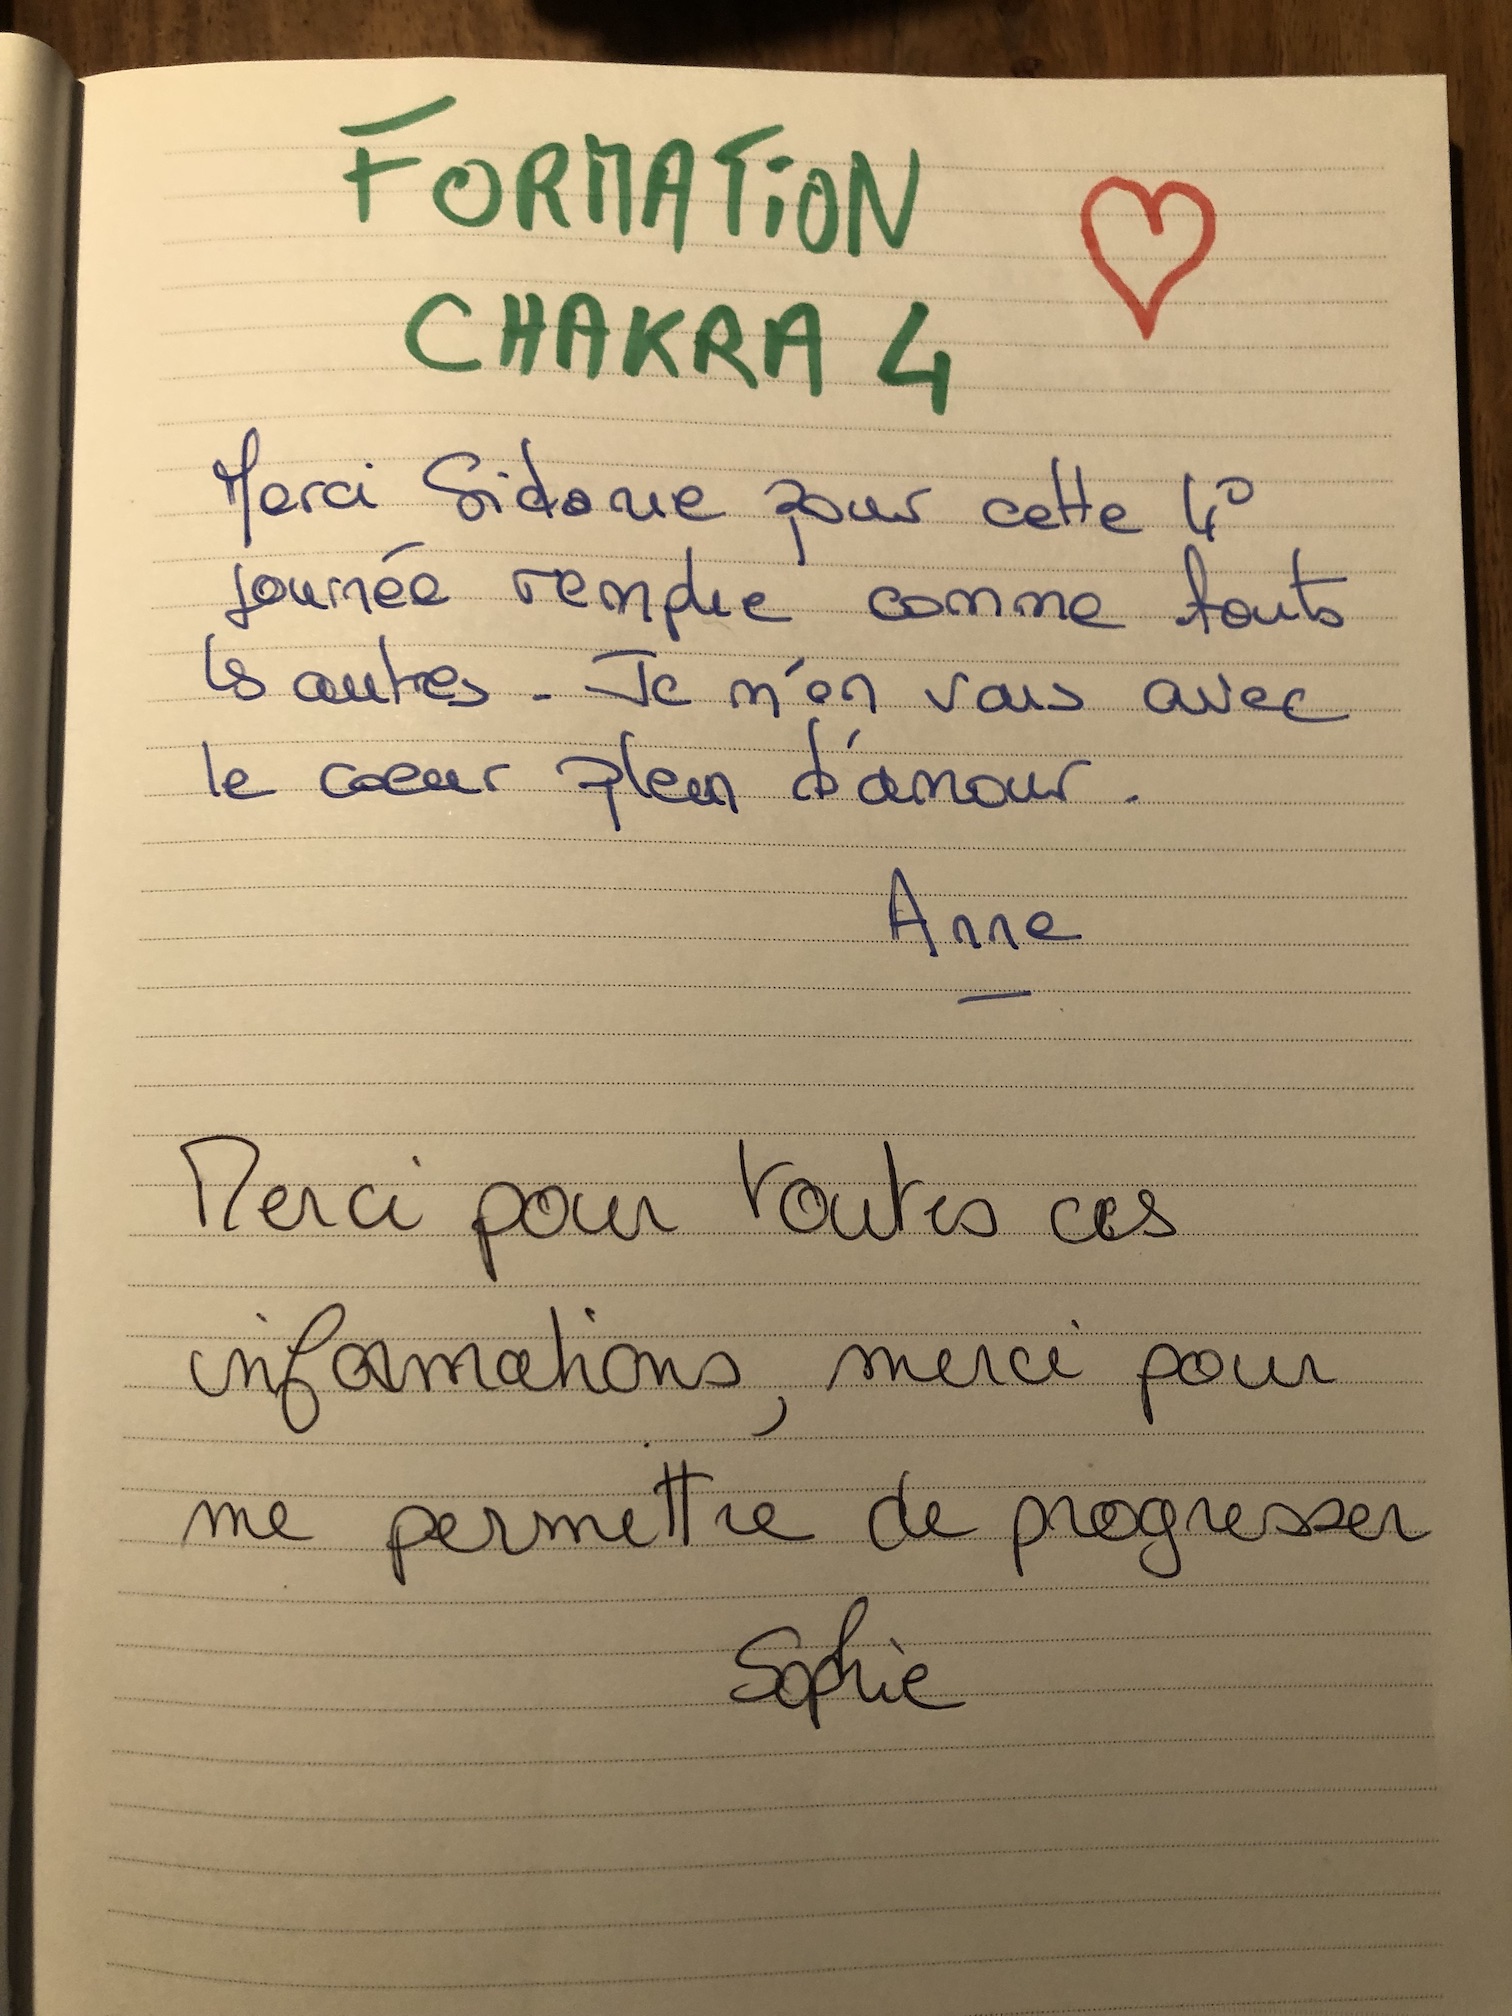 FORMATION
CHAKRA 4
Merci Sidonie pour cette 4°
journée remplie comme toutes
les autres. Je m'en vais avec
le coeur plein d'amour.
Anne
Merci pour toutes ces
informations, merci pour
me permettre de progresser
Sophie